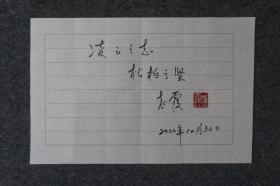 凌云之志
松柏之坚
志霞
2022年10月30日